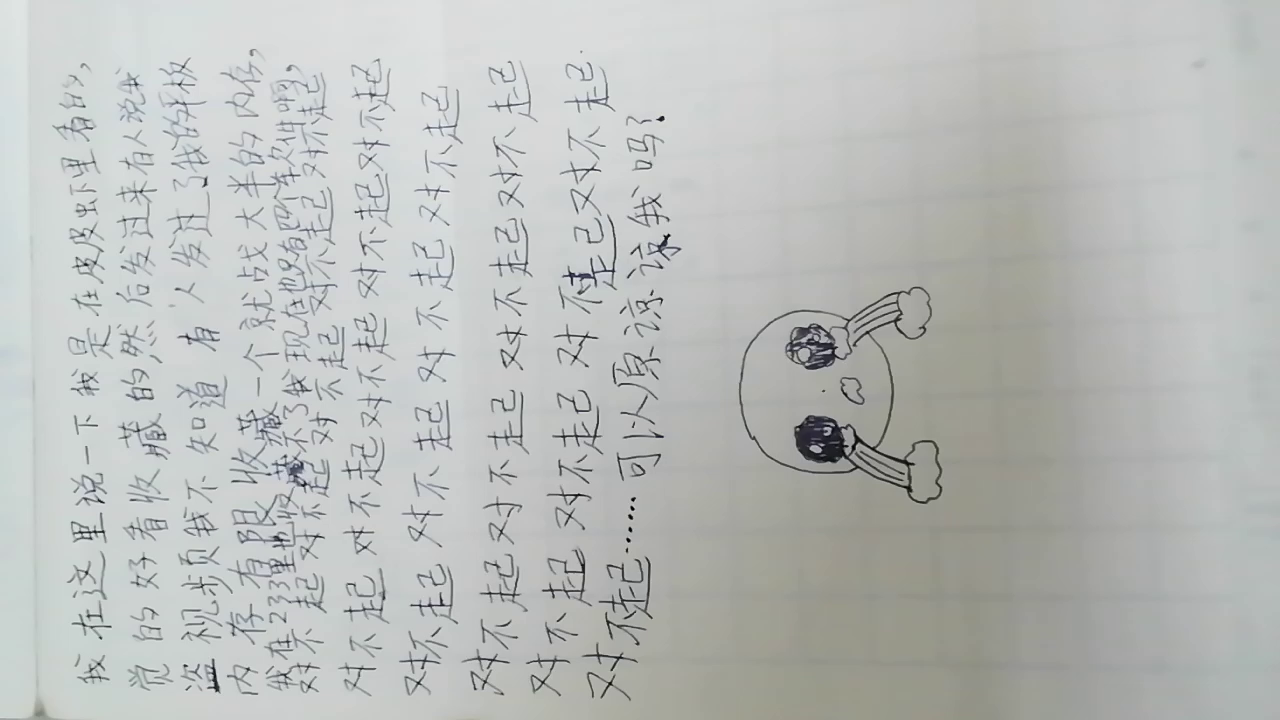 我在这里说一下我是在皮皮虾里看的,
觉的好看收藏的然后发过来有人说我
盗视频我不知道有人发过了我的平板
内存有限收藏一个就战大半的内存,
我在233里也收藏不了我现在也只有四个软件啊,
对不起对不起对不起对不起对不起
对不起对不起对不起对不起对不起对不起
对不起对不起对不起对不起
对不起对不起对不起对不起
对不起对不起对不起对不起.
对不起……可以原谅谅我吗?